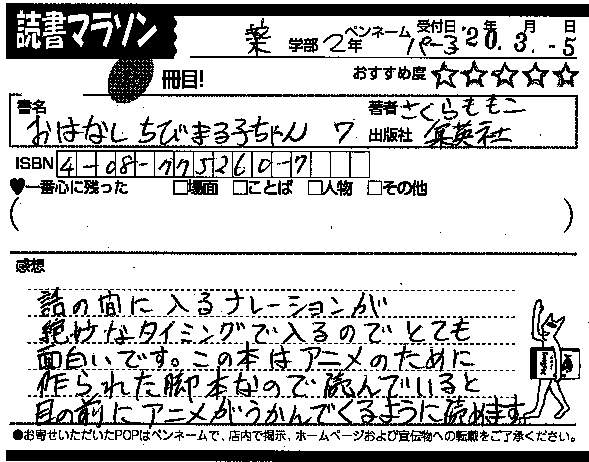 読書マラソン
薬 学部 2年 ペンネーム パーコ 受付日 '20年 3.月 -5日
冊目! おすすめ度 ☆☆☆☆☆
書名 おはなしちびまる子ちゃん 7
著者 さくらももこ
出版社 集英社
ISBN 4-08-775260-7
♥一番心に残った □場面 □ことば □人物 □その他
( )
感想
話の間に入るナレーションが
絶妙なタイミングで入るのでとても
面白いです。この本はアニメのために
作られた脚本なので読んでいると
目の前にアニメがうかんでくるように読めます。
●お寄せいただいたPOPはペンネームで、店内で掲示、ホームページおよび宣伝物への転載をご了承ください。